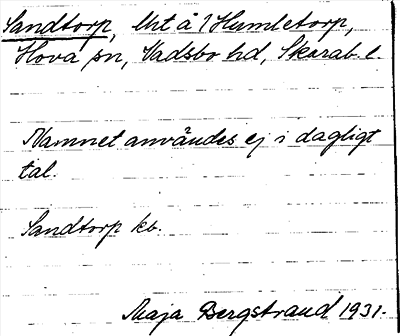 Sandtorp, lht å 1 Humletorp,
Hova sn, Vadsbo hd, Skarab. l.
Namnet användes ej i dagligt
tal.
Sandtorp kb.
Maja Bergstrand 1931.